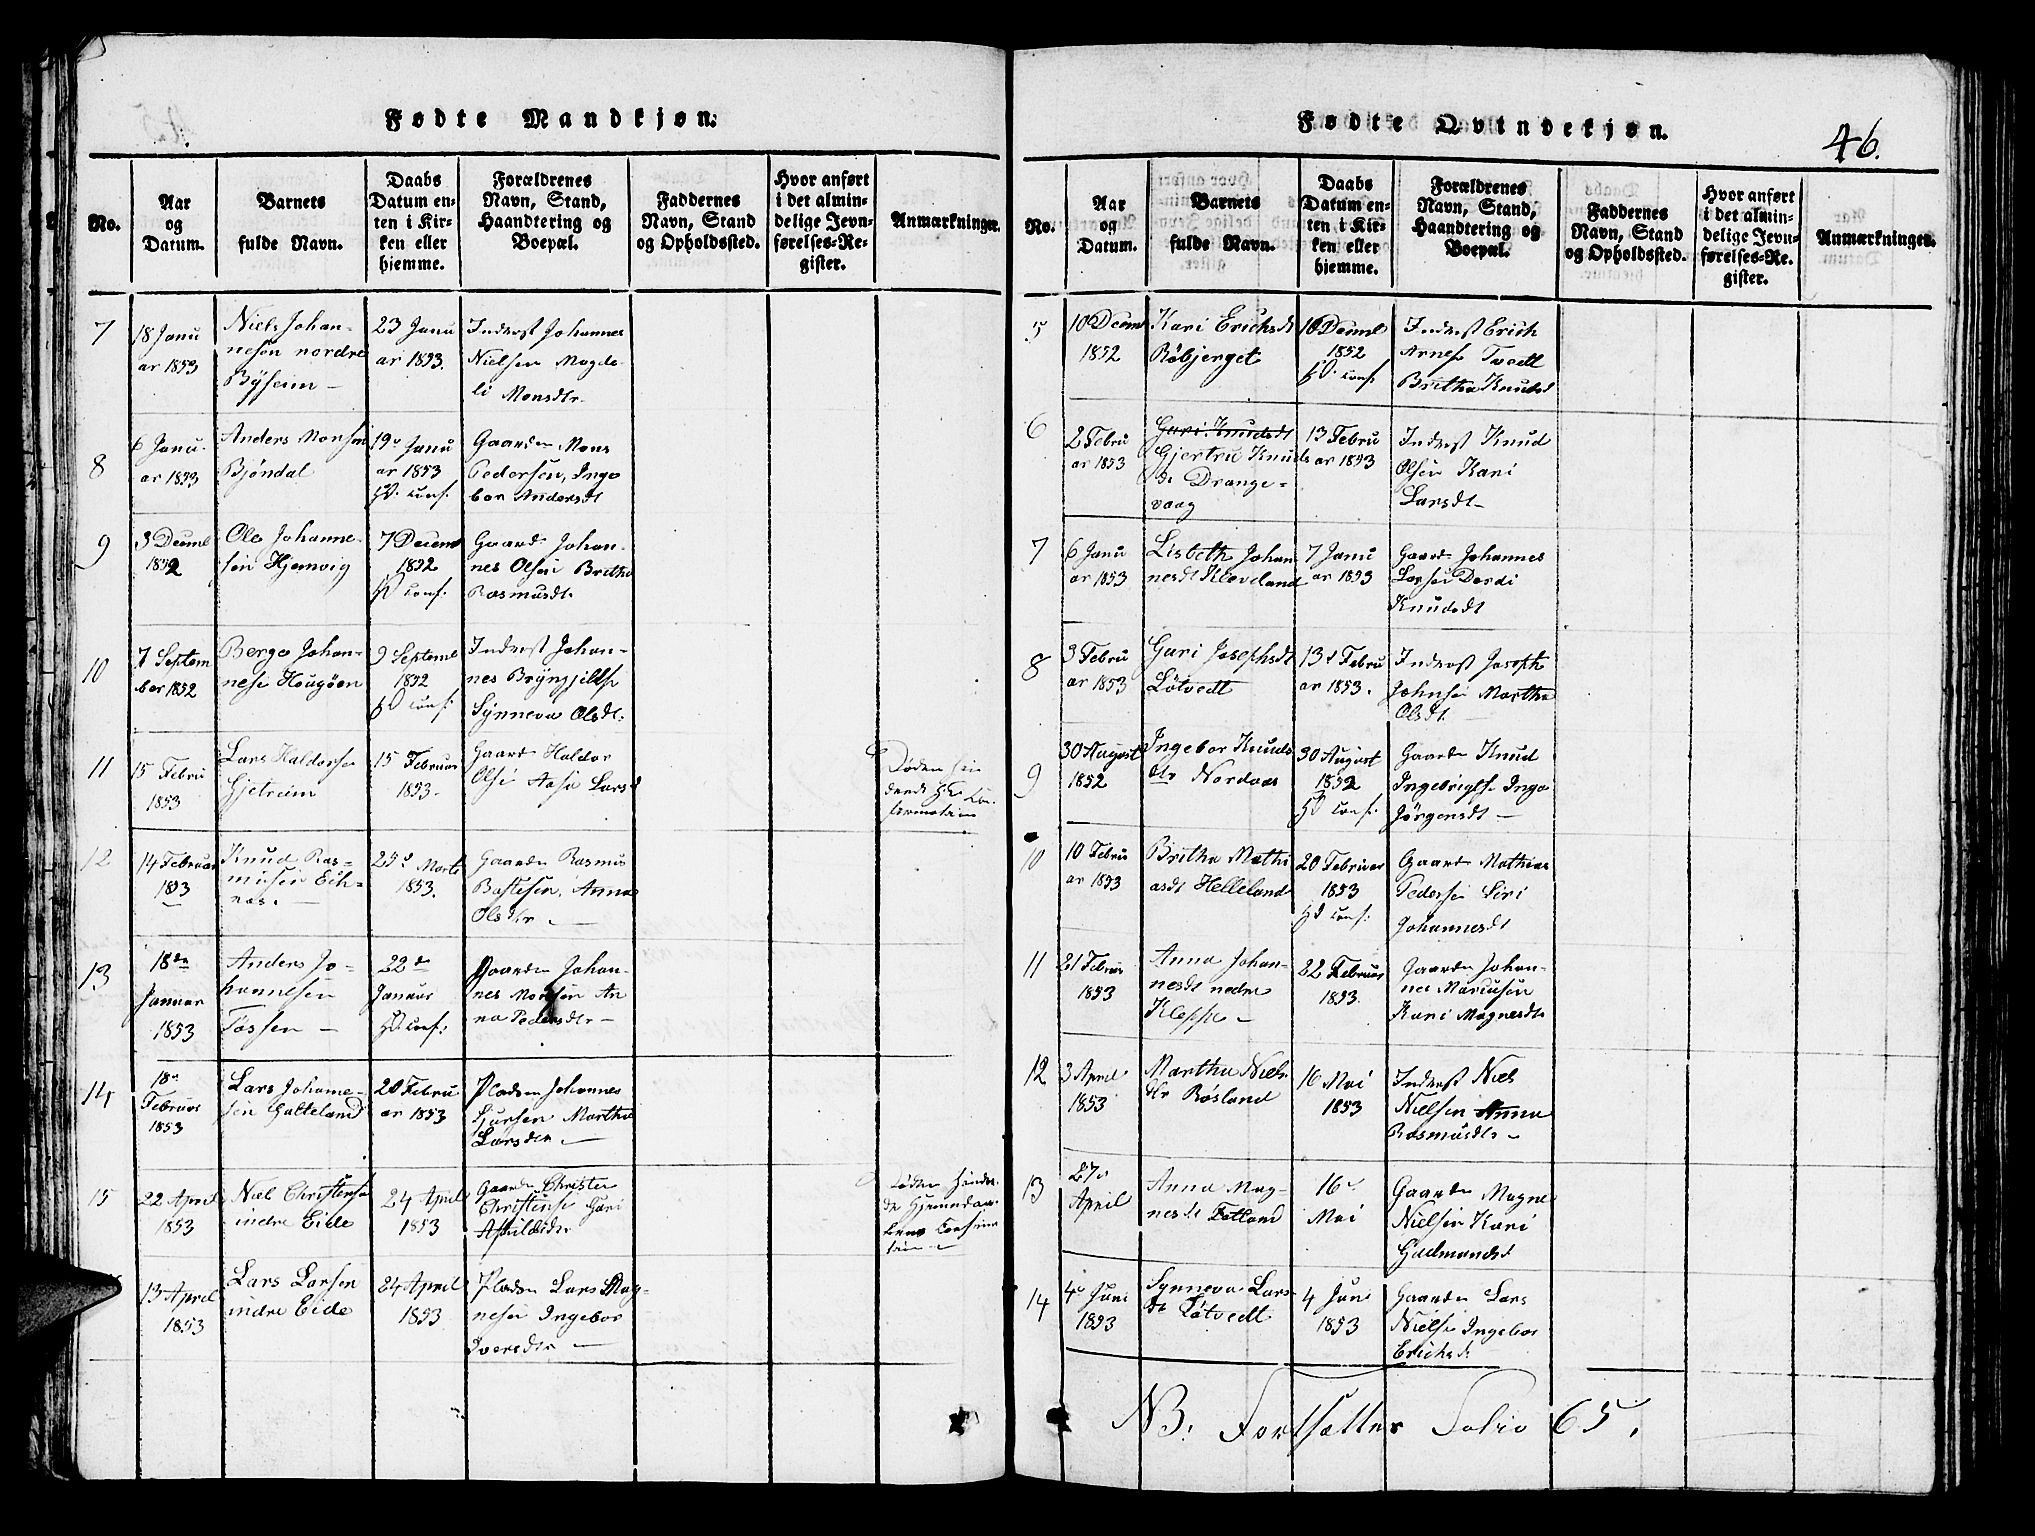 Fødte Mandkjøn.
No.
Aar
og
Datum.
Barnets
fulde Navn.
Daabs
Datum en-
ten i Kir-
ken eller
hjemme.
Forældrenes
Navn, Stand,
Haandtering og
Boepæl.
Faddernes
Navn, Stand
og Opholdssted.
Hvor anført
i det almin-
delige Jevn-
førelses-Re-
gister.
Anmærkninger.
7
18 Janu
ar 1853
Niels Johan-
nesen nordre
Byseim
23 Janu
ar 1853.
Inderst Johannes
Nielsen Magde
li Monsdtr.
8
6 Janu.
ar 1853
Anders Monsen
Bjöndal
19 Janu
ar 1853
Gaardm Mons
Pedersen, Inge
bor Andersdt
9
3 Deceml
1852
Ole Johanne-
sen Hjemvig
7 Decem
1852
Gaardm Johan-
nes Olsen Britha
Rasmusdt.
10
7 Septem
ber 1852
Berge Johan-
nese Hougöen
9 Septeml
1852
Inderst Johan-
nes Brynjilse
Synneva Olsdt.
11
15 Febru
1853
Lars Haldorse
Gjetreim
15 Februar
1853.
Gaardm Haldor
Olse Aase Larsd
Döden
12
14 Februar
1853
Knud Ras-
musen Eik-
næs.
25d Marts
1853.
Gaardm Rasmus
Bastesen, Anna
Olsdtr
13
18de
Januar
1853
Anders Jo-
hannesen
Tössen
22de
Januar
Gaardm Johan-
nes Monsen An
na Pedersdtr
14
18
Februar
1853
Lars Johanne-
sen Gatteland
20 Febru
ar 1853
Pladsm Johannes
Sjursen Martha
Larsdtr
15
22 April
1853
Niel Christense
indre Eide
24 April
1853
Gaardm Christen
Christense Guri
13 April
1853
Lars Larsen
indre Eide
24 April
1853
Pladsm Lars Mag-
nesen Ingebor
Iversdtr
Fødte Qvindekjøn.
46.
No.
Aar
og
Datum.
Barnets
fulde Navn.
Daabs
Datum en-
ten i Kir-
ken eller
hjemme.
Forældrenes
Navn, Stand,
Haandtering og
Boepæl.
Faddernes
Navn, Stand
og Opholdssted.
Hvor anført
i det almin-
delige Jevn-
førelses-Re-
gister.
Anmærkninger.
5
10 Decem
1852
Kari Erichsdt
Röbjerget
10 Deceml
1852
Inderst Erich
Arnese Tvedt
Britha Knudsd
6
2 Febru
ar 1853
Guri Knudsdt
Gjertru Knuds
dt Drange-
vaag
13 Febru
ar 1853
Inderst Knud
Olsen Kari
Larsdt
7
6 Janu
ar 1853
Lisbeth Johan
nesdt Kleveland
7 Janu
ar 1853
Gaardm Johannes
Larsen Dordi
Knudsdt
8
3 Febru
ar 1853
Guri Josephsdt
Lötvedt
13d Febru
ar 1853.
Inderst Joseph
Johnsen Martha
Olsdt
9
30 August
1852
Ingebor Knuds
dtr Nordaas
30 August
1852
Gaardm Knud
Ingebrigtse Inga
Jörgensdt
10
10 Febru
ar 1853
Britha Mathi
asdt Helleland
20 Februar
1853
Gaardm Mathias
Pedersen Siri
Johannesdt
11
21 Februar
1853
Anna Johan-
nesdt nedre
Kleppe
22 Februar
1853
Gaardm Johan-
nes Mariusen
Kari Magnesdtr
12
3 April
1853
Martha Niels
dtr Rösland
16 Mai
1853
Inderst Niels
Nielsen Anna
Rasmusdtr
13
27
April
Anna Mag-
nesdt Fetland
16
Mai
Gaardm Magne
Nielsen Kari
Gudmundsd
14
4 Juni
1853
Synneva Lars-
dt Lötvedt
4 Juni
1853
Gaardm Lars
Nielse Ingebor
Erichsd
NB. Fortsættes Folio 65.